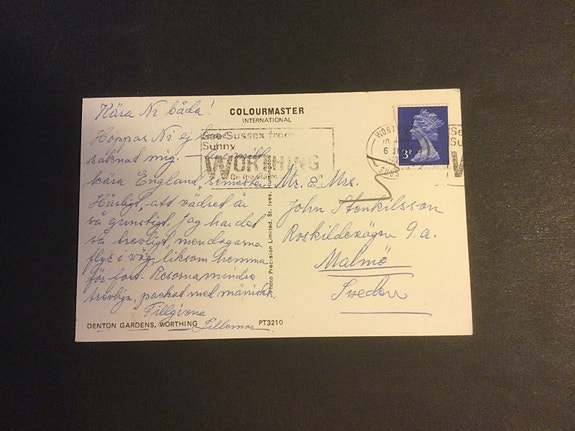 Kära Ni båda!
COLOURMASTER
INTERNATIONAL
Hoppas Ni ej
saknat mig.
kära England,
Härligt, att vädret är
så gynnsamt. Jag har det
så trevligt, men dagarna
flyr i väg, liksom hemma
för fort. Resorna mindre
trevliga, packat med människ
Tillgivna
DENTON GARDENS, WORTHING
PT3210
See Sussex from
Sunny
WORTHING
On the Plain
Photo Precision Limited, St. Ives,
WORTH
3P
Se
Mr. & Mrs.
John Stenkilsson
Roskildevägen 9.a.
Malmö
Sweden